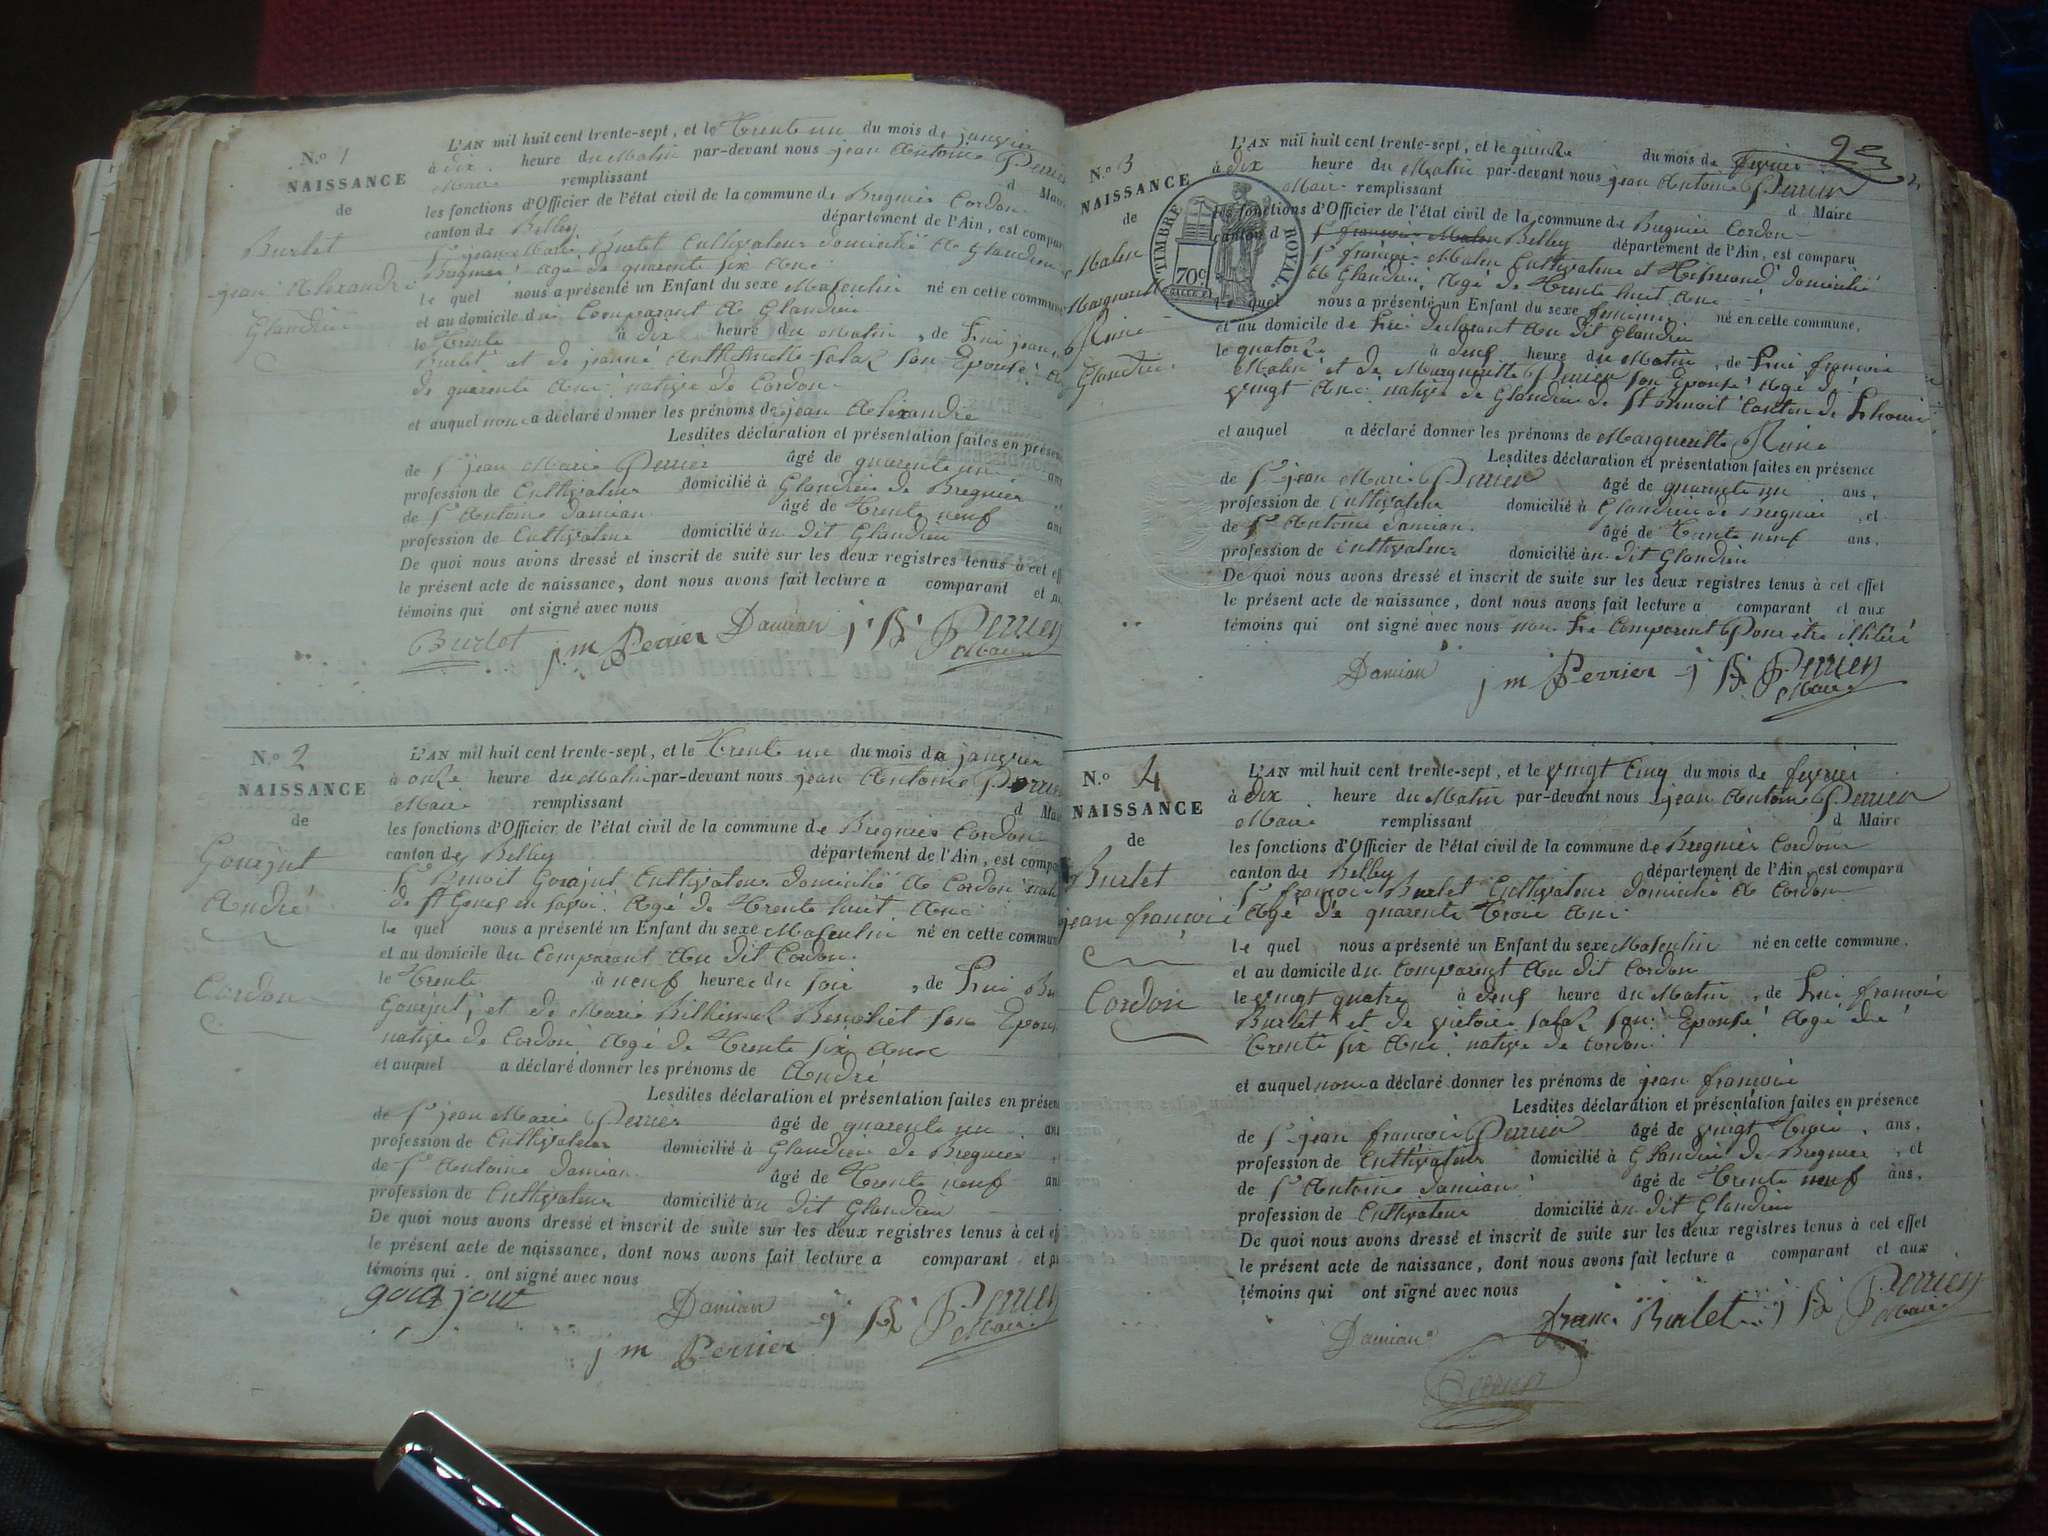 N.o 1
NAISSANCE
de
Burlet
jean Alexandre
Glandieu
L'AN mil huit cent trente-sept, et le Trente un du mois de janvier
à dix heure du Matin par-devant nous jean Antoine Perrier
Maire remplissant d Maire
les fonctions d'Officier de l'état civil de la commune de Bregnier Cordon
canton de Belley département de l'Ain, est compar
Sr jean Marie Burlet Cultivateur domicilié à Glandieu
Bregnier Agé de quarente six Ans
le quel nous a présenté un Enfant du sexe Masculin né en cette commune
et au domicile du Comparant à Glandieu
le Trente à dix heure du Matin, de Lui jean
Burlet et de jeanne Anthelmette son Epouse
de quarente Ans native de Cordon
et auquel nous a déclaré donner les prénoms de jean Alexandre
Lesdites déclaration et présentation faites en présen
de Sr jean Marie Perrier âgé de quarente un ans
profession de Cultivateur domicilié à Glandieu de Bregnier
de Sr Antoine Damian âgé de Trente neuf ans
profession de Cultivateur domicilié àu dit Glandieu
De quoi nous avons dressé et inscrit de suite sur les deux registres tenus à cet eff
le présent acte de naissance, dont nous avons fait lecture a comparant et au
témoins qui ont signé avec nous
Burlet j m Perrier Damian Perrier
Maire
N.o 2
NAISSANCE
de
Goujut
André
Cordon
L'AN mil huit cent trente-sept, et le Trente un du mois de janvier
à onze heure du Matin par-devant nous jean Antoine Perrier
Maire remplissant d Mai
les fonctions d'Officier de l'état civil de la commune de Bregnier Cordon
canton de Belley département de l'Ain, est compa
Sr Benoit Goujut Cultivateur domicilié à Cordon
de St Genis en Savoi Agé de Trente huit Ans
le quel nous a présenté un Enfant du sexe Masculin né en cette commun
et au domicile du Comparant Au dit Cordon
le Trente à neuf heures du soir, de Lui
Goujut, et de Marie Benoliet son Epous
native de Cordon Agé de Trente six Ans
et auquel a déclaré donner les prénoms de André
Lesdites déclaration et présentation faites en présen
de Sr jean Marie Perrier âgé de quarente un ans
profession de Cultivateur domicilié à Glandieu de Bregnier
de Sr Antoine Damian âgé de Trente neuf ans
profession de Cultivateur domicilié àu dit Glandieu
De quoi nous avons dressé et inscrit de suite sur les deux registres tenus à cet eff
le présent acte de naissance, dont nous avons fait lecture a comparant et au
témoins qui ont signé avec nous
goujout Damian Perrier
j m Perrier Maire
2e
N.o 3
NAISSANCE
de
Matin
Margueritte
Rine
Glandieu
TIMBRE ROYAL
70c
L'AN mil huit cent trente-sept, et le quinze du mois de fevrier
à dix heure du Matin par-devant nous jean Antoine Perrier
Maire remplissant d Maire
les fonctions d'Officier de l'état civil de la commune de Bregnier Cordon
canton d Belley département de l'Ain, est comparu
Sr françois Matin Cultivateur et domicilié
à Glandieu, Agé de Trente huit Ans
le quel nous a présenté un Enfant du sexe feminin né en cette commune,
et au domicile de Lui declarant Au dit Glandieu
le quatorze à deux heure du Matin, de Lui françois
Matin et de Margueritte Perrier son Epouse Agé de
vingt Ans native de Glandieu de St Benoit Canton de Lhouis
et auquel a déclaré donner les prénoms de Margueritte Rine
Lesdites déclaration et présentation faites en présence
de Sr jean Marie Perrier âgé de quarente un ans,
profession de Cultivateur domicilié à Glandieu de Bregnier, et
de Sr Antoine Damian âgé de Trente neuf ans.
profession de Cultivateur domicilié àu dit Glandieu
De quoi nous avons dressé et inscrit de suite sur les deux registres tenus à cet effet
le présent acte de naissance, dont nous avons fait lecture a comparant et aux
témoins qui ont signé avec nous non Le Comparent Pour etre illitéré
Damian j m Perrier Perrier
Maire
N.o 4
NAISSANCE
de
Burlet
jean françois
Cordon
L'AN mil huit cent trente-sept, et le vingt Cinq du mois de fevrier
à dix heure du Matin par-devant nous jean Antoine Perrier
Maire remplissant d Maire
les fonctions d'Officier de l'état civil de la commune de Bregnier Cordon
canton de Belley département de l'Ain, est comparu
Sr françois Burlet Cultivateur domicilié à Cordon
Agé de quarente Trois Ans
le quel nous a présenté un Enfant du sexe Masculin né en cette commune.
et au domicile du Comparent Au dit Cordon
le vingt quatre à deux heure du Matin, de Lui françois
Burlet et de victoire son Epouse Agé de
Trente six Ans native de Cordon
et auquel nous a déclaré donner les prénoms de jean françois
Lesdites déclaration et présentation faites en présence
de Sr jean françois Perrier âgé de vingt Trois, ans,
profession de Cultivateur domicilié à Glandieu de Bregnier, et
de Sr Antoine Damian âgé de Trente neuf ans,
profession de Cultivateur domicilié àu dit Glandieu
De quoi nous avons dressé et inscrit de suite sur les deux registres tenus à cet effet
le présent acte de naissance, dont nous avons fait lecture a comparant et aux
témoins qui ont signé avec nous
Damian Burlet Perrier
Maire
Perrier